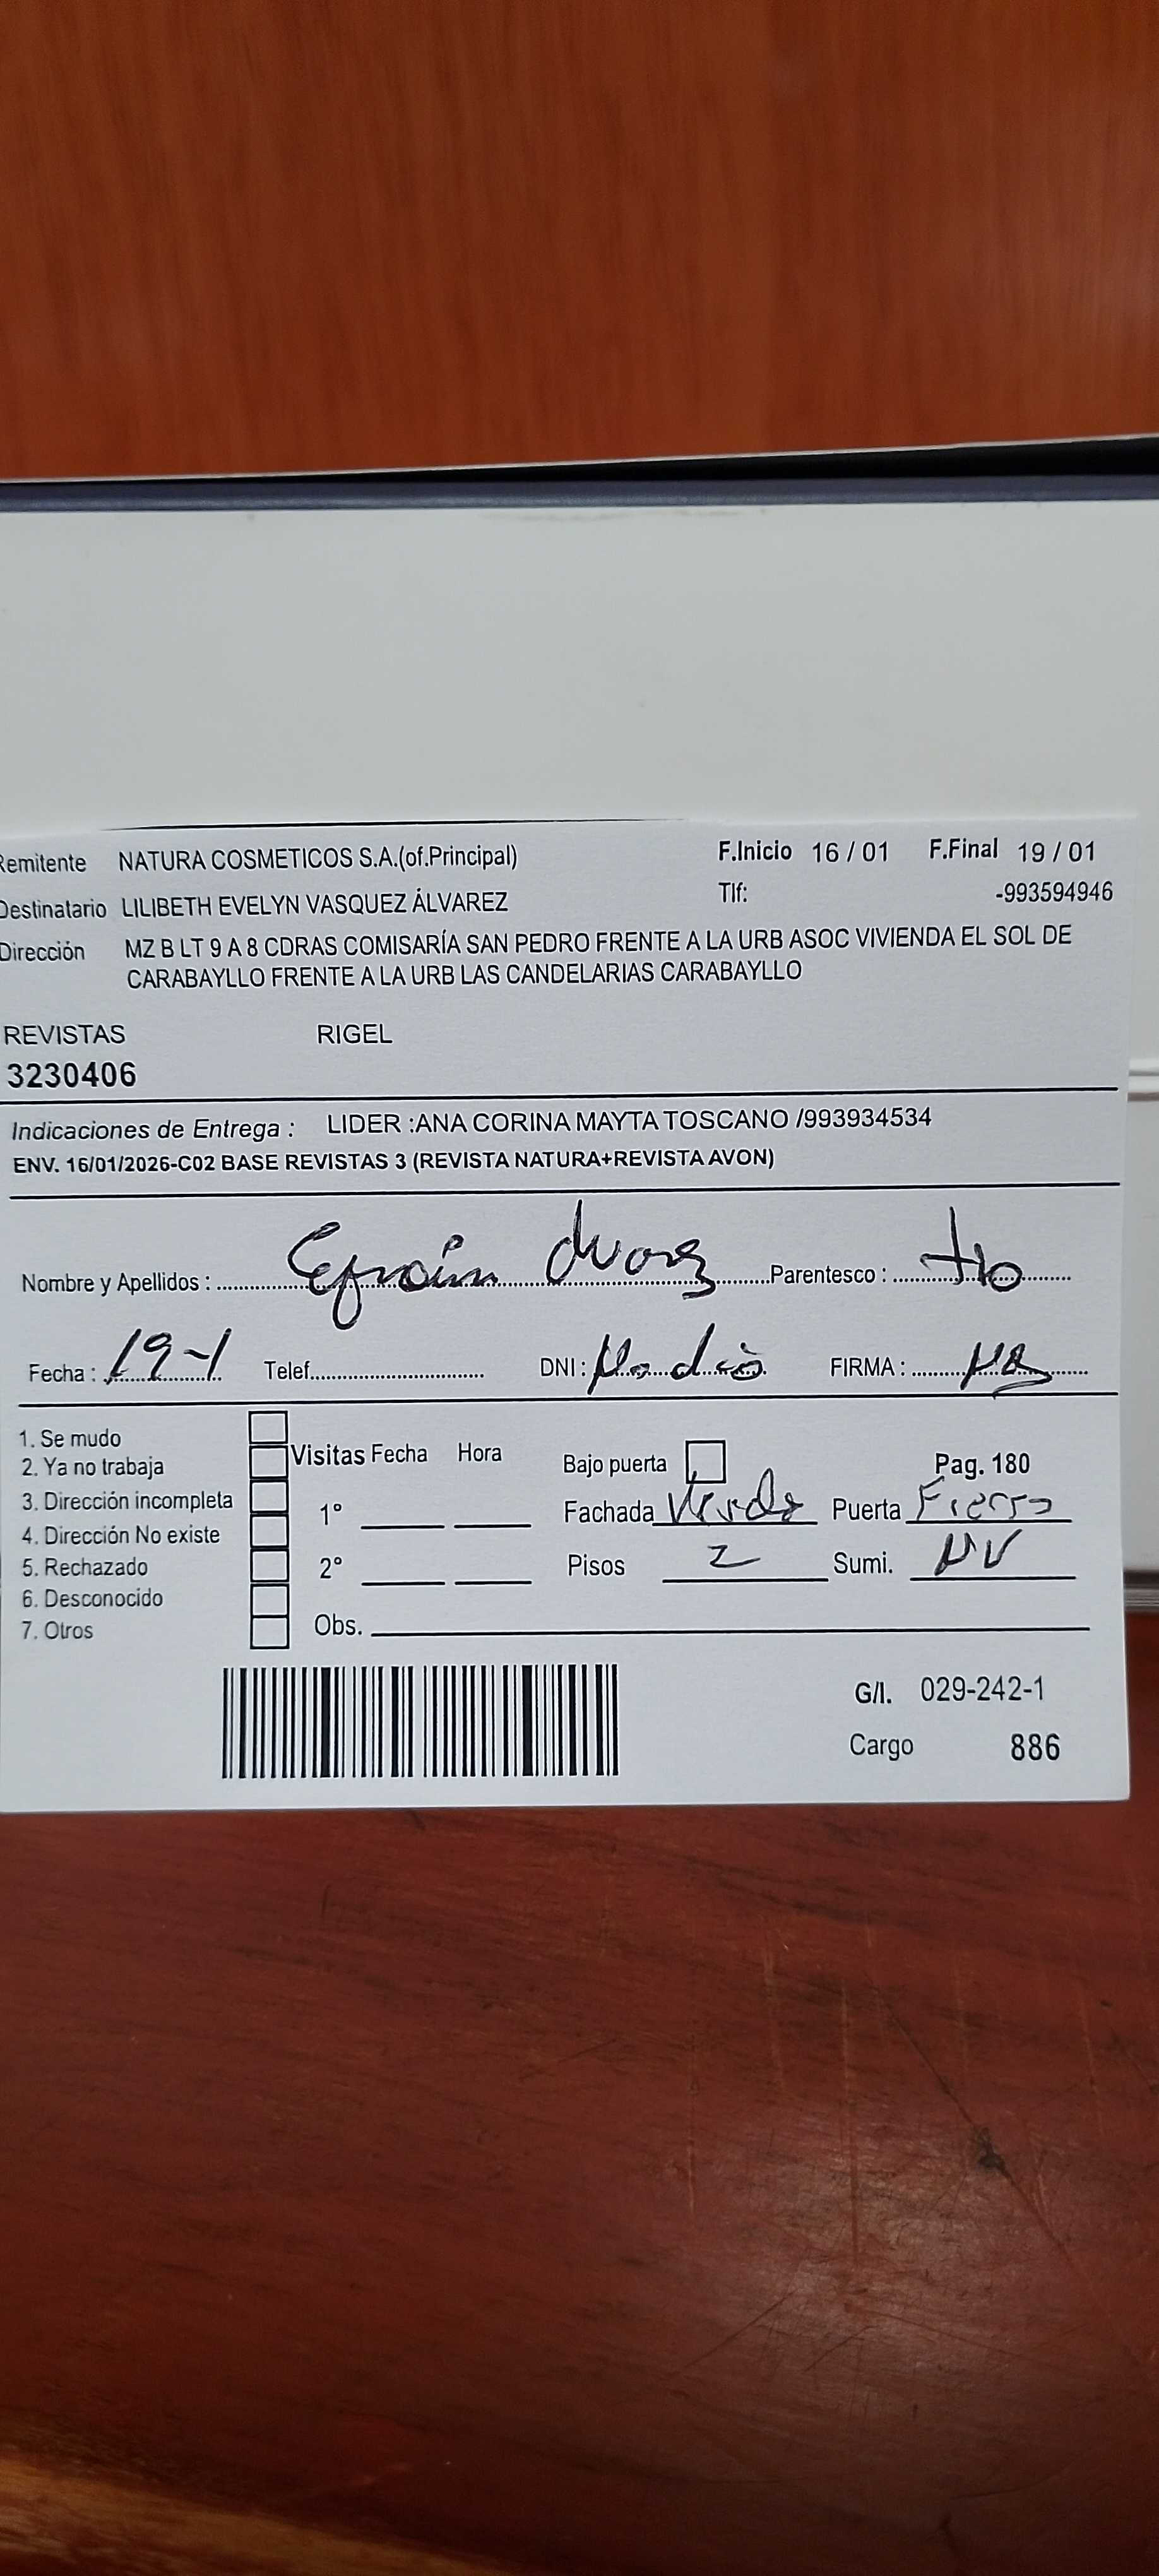 Remitente NATURA COSMETICOS S.A.(of.Principal) F.Inicio 16 / 01 F.Final 19 / 01
Destinatario LILIBETH EVELYN VASQUEZ ÁLVAREZ Tlf: -993594946
Dirección MZ B LT 9 A 8 CDRAS COMISARÍA SAN PEDRO FRENTE A LA URB ASOC VIVIENDA EL SOL DE
CARABAYLLO FRENTE A LA URB LAS CANDELARIAS CARABAYLLO
REVISTAS RIGEL
3230406
Indicaciones de Entrega : LIDER :ANA CORINA MAYTA TOSCANO /993934534
ENV. 16/01/2026-C02 BASE REVISTAS 3 (REVISTA NATURA+REVISTA AVON)
Nombre y Apellidos : Efraín Parentesco : tío
Fecha : 19-1 Telef. DNI : No dio FIRMA :
1. Se mudo
2. Ya no trabaja
3. Dirección incompleta
4. Dirección No existe
5. Rechazado
6. Desconocido
7. Otros
Visitas Fecha Hora
1°
2°
Obs.
Bajo puerta Pag. 180
Fachada Verde Puerta Fierro
Pisos 2 Sumi. NV
G/I. 029-242-1
Cargo 886